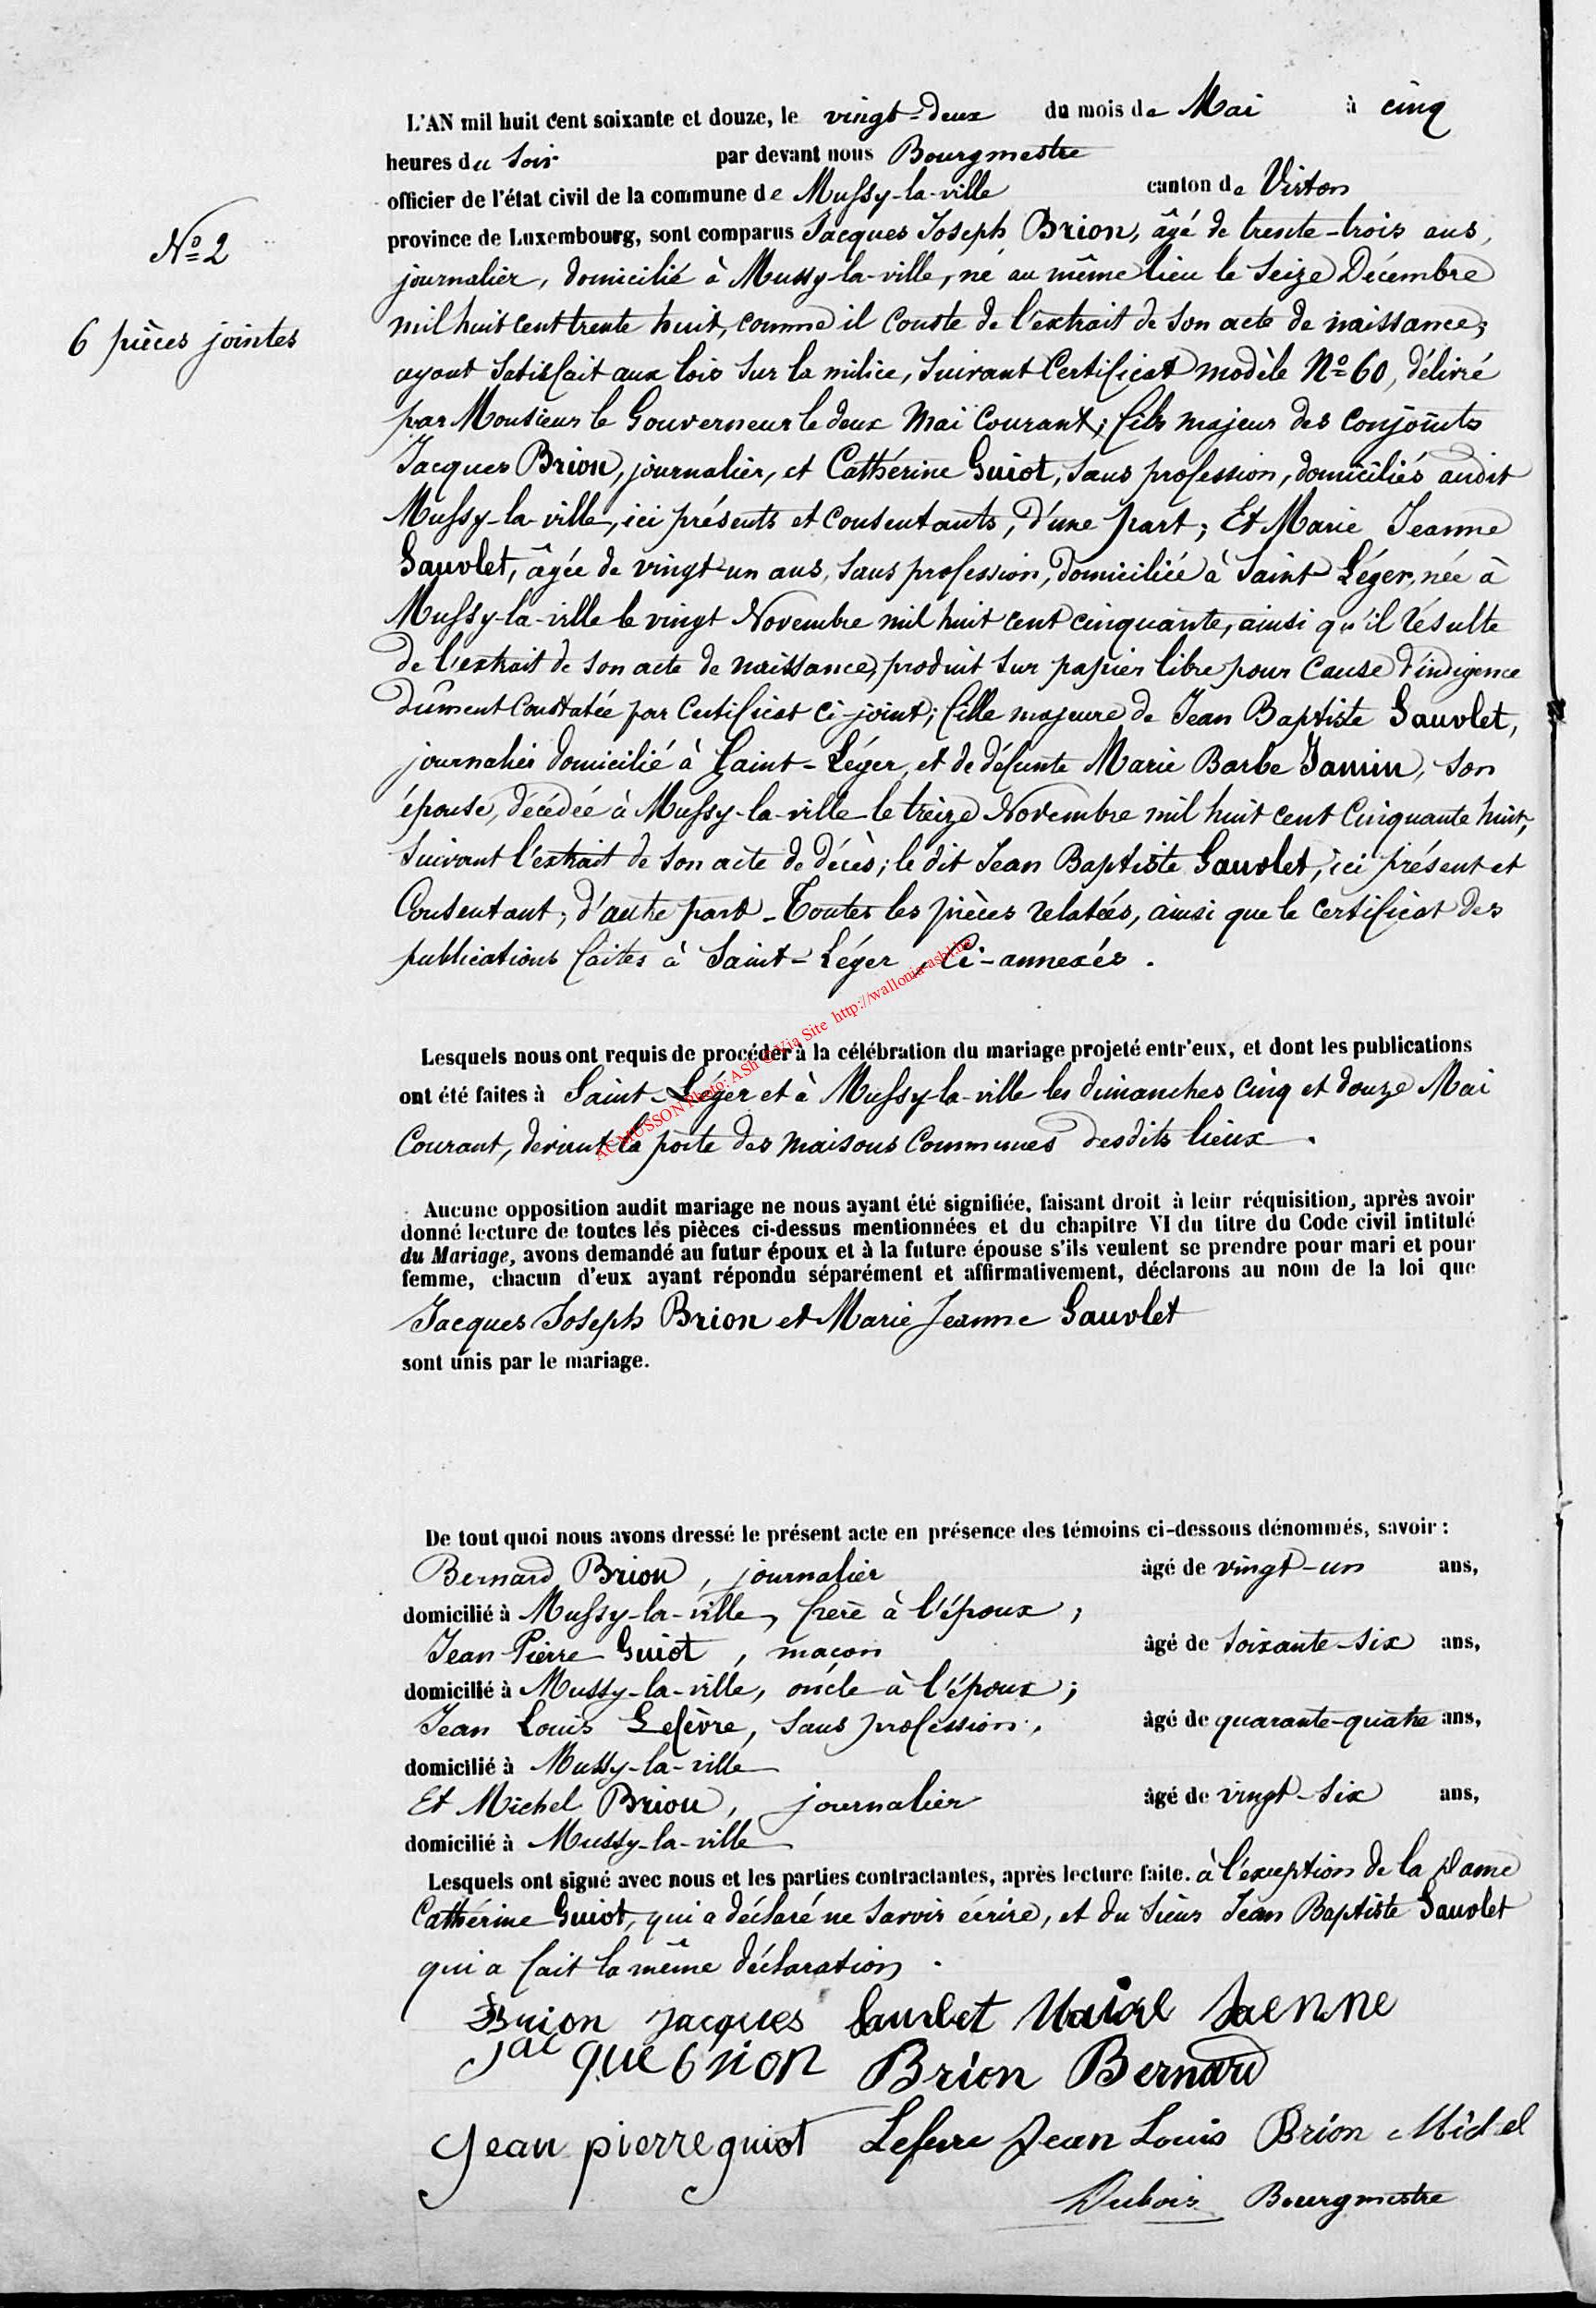 L'AN mil huit cent soixante et douze, le vingt-deux du mois de Mai à cinq
heures du Soir par devant nous Bourgmestre
officier de l'état civil de la commune de Mussy-la-ville canton de Virton
N° 2
province de Luxembourg, sont comparus Jacques Joseph Brion, âgé de trente-trois ans,
journalier, domicilié à Mussy-la-ville, né au même lieu le seize Décembre
6 pièces jointes
mil huit cent trente huit, comme il conste de l'extrait de son acte de naissance;
ayant satisfait aux lois sur la milice, suivant Certificat modèle N° 60, délivré
par Monsieur le Gouverneur le deux Mai courant; fils majeur des conjoints
Jacques Brion, journalier, et Cathérine Guiot, sans profession, domiciliés audit
Mussy-la-ville, ici présents et consentants, d'une part; Et Marie Jeanne
Gauvlet, âgée de vingt-un ans, sans profession, domiciliée à Saint Léger, née à
Mussy-la-ville le vingt Novembre mil huit cent cinquante, ainsi qu'il résulte
de l'extrait de son acte de naissance, produit sur papier libre pour cause d'indigence
dûment constatée par certificat ci-joint; fille majeure de Jean Baptiste Gauvlet,
journalier domicilié à Saint-Léger, et de défunte Marie Barbe Jamin, son
épouse, décédée à Mussy-la-ville le treize Novembre mil huit cent cinquante huit,
suivant l'extrait de son acte de décès; le dit Jean Baptiste Gauvlet, ici présent et
consentant; d'autre part. Toutes les pièces relatées, ainsi que le certificat des
publications faites à Saint-Léger, Ci-annexés.
ACMUSSON Photo: ASh © Via Site http://wallonia-asbl.be
Lesquels nous ont requis de procéder à la célébration du mariage projeté entr'eux, et dont les publications
ont été faites à Saint-Léger et à Mussy-la-ville les dimanches cinq et douze Mai
Courant, devant la porte des maisons communes desdits lieux.
Aucune opposition audit mariage ne nous ayant été signifiée, faisant droit à leur réquisition, après avoir
donné lecture de toutes les pièces ci-dessus mentionnées et du chapitre VI du titre du Code civil intitulé
du Mariage, avons demandé au futur époux et à la future épouse s'ils veulent se prendre pour mari et pour
femme, chacun d'eux ayant répondu séparément et affirmativement, déclarons au nom de la loi que
Jacques Joseph Brion et Marie Jeanne Gauvlet
sont unis par le mariage.
De tout quoi nous avons dressé le présent acte en présence des témoins ci-dessous dénommés, savoir:
Bernard Brion, journalier âgé de vingt-un ans,
domicilié à Mussy-la-ville, frère à l'époux;
Jean Pierre Guiot, maçon âgé de soixante-six ans,
domicilié à Mussy-la-ville, oncle à l'époux;
Jean Louis Lefèvre, sans profession, âgé de quarante-quatre ans,
domicilié à Mussy-la-ville
Et Michel Brion, journalier âgé de vingt-six ans,
domicilié à Mussy-la-ville
Lesquels ont signé avec nous et les parties contractantes, après lecture faite. à l'exception de la Dame
Cathérine Guiot, qui a déclaré ne savoir écrire, et du Sieur Jean Baptiste Gauvlet
qui a fait la même déclaration.
Brion jacques Gauvlet Marie Jaenne
jac que brion Brion Bernard
jean pierre guiot Lefevre Jean Louis Brion Michel
Dubois Bourgmestre